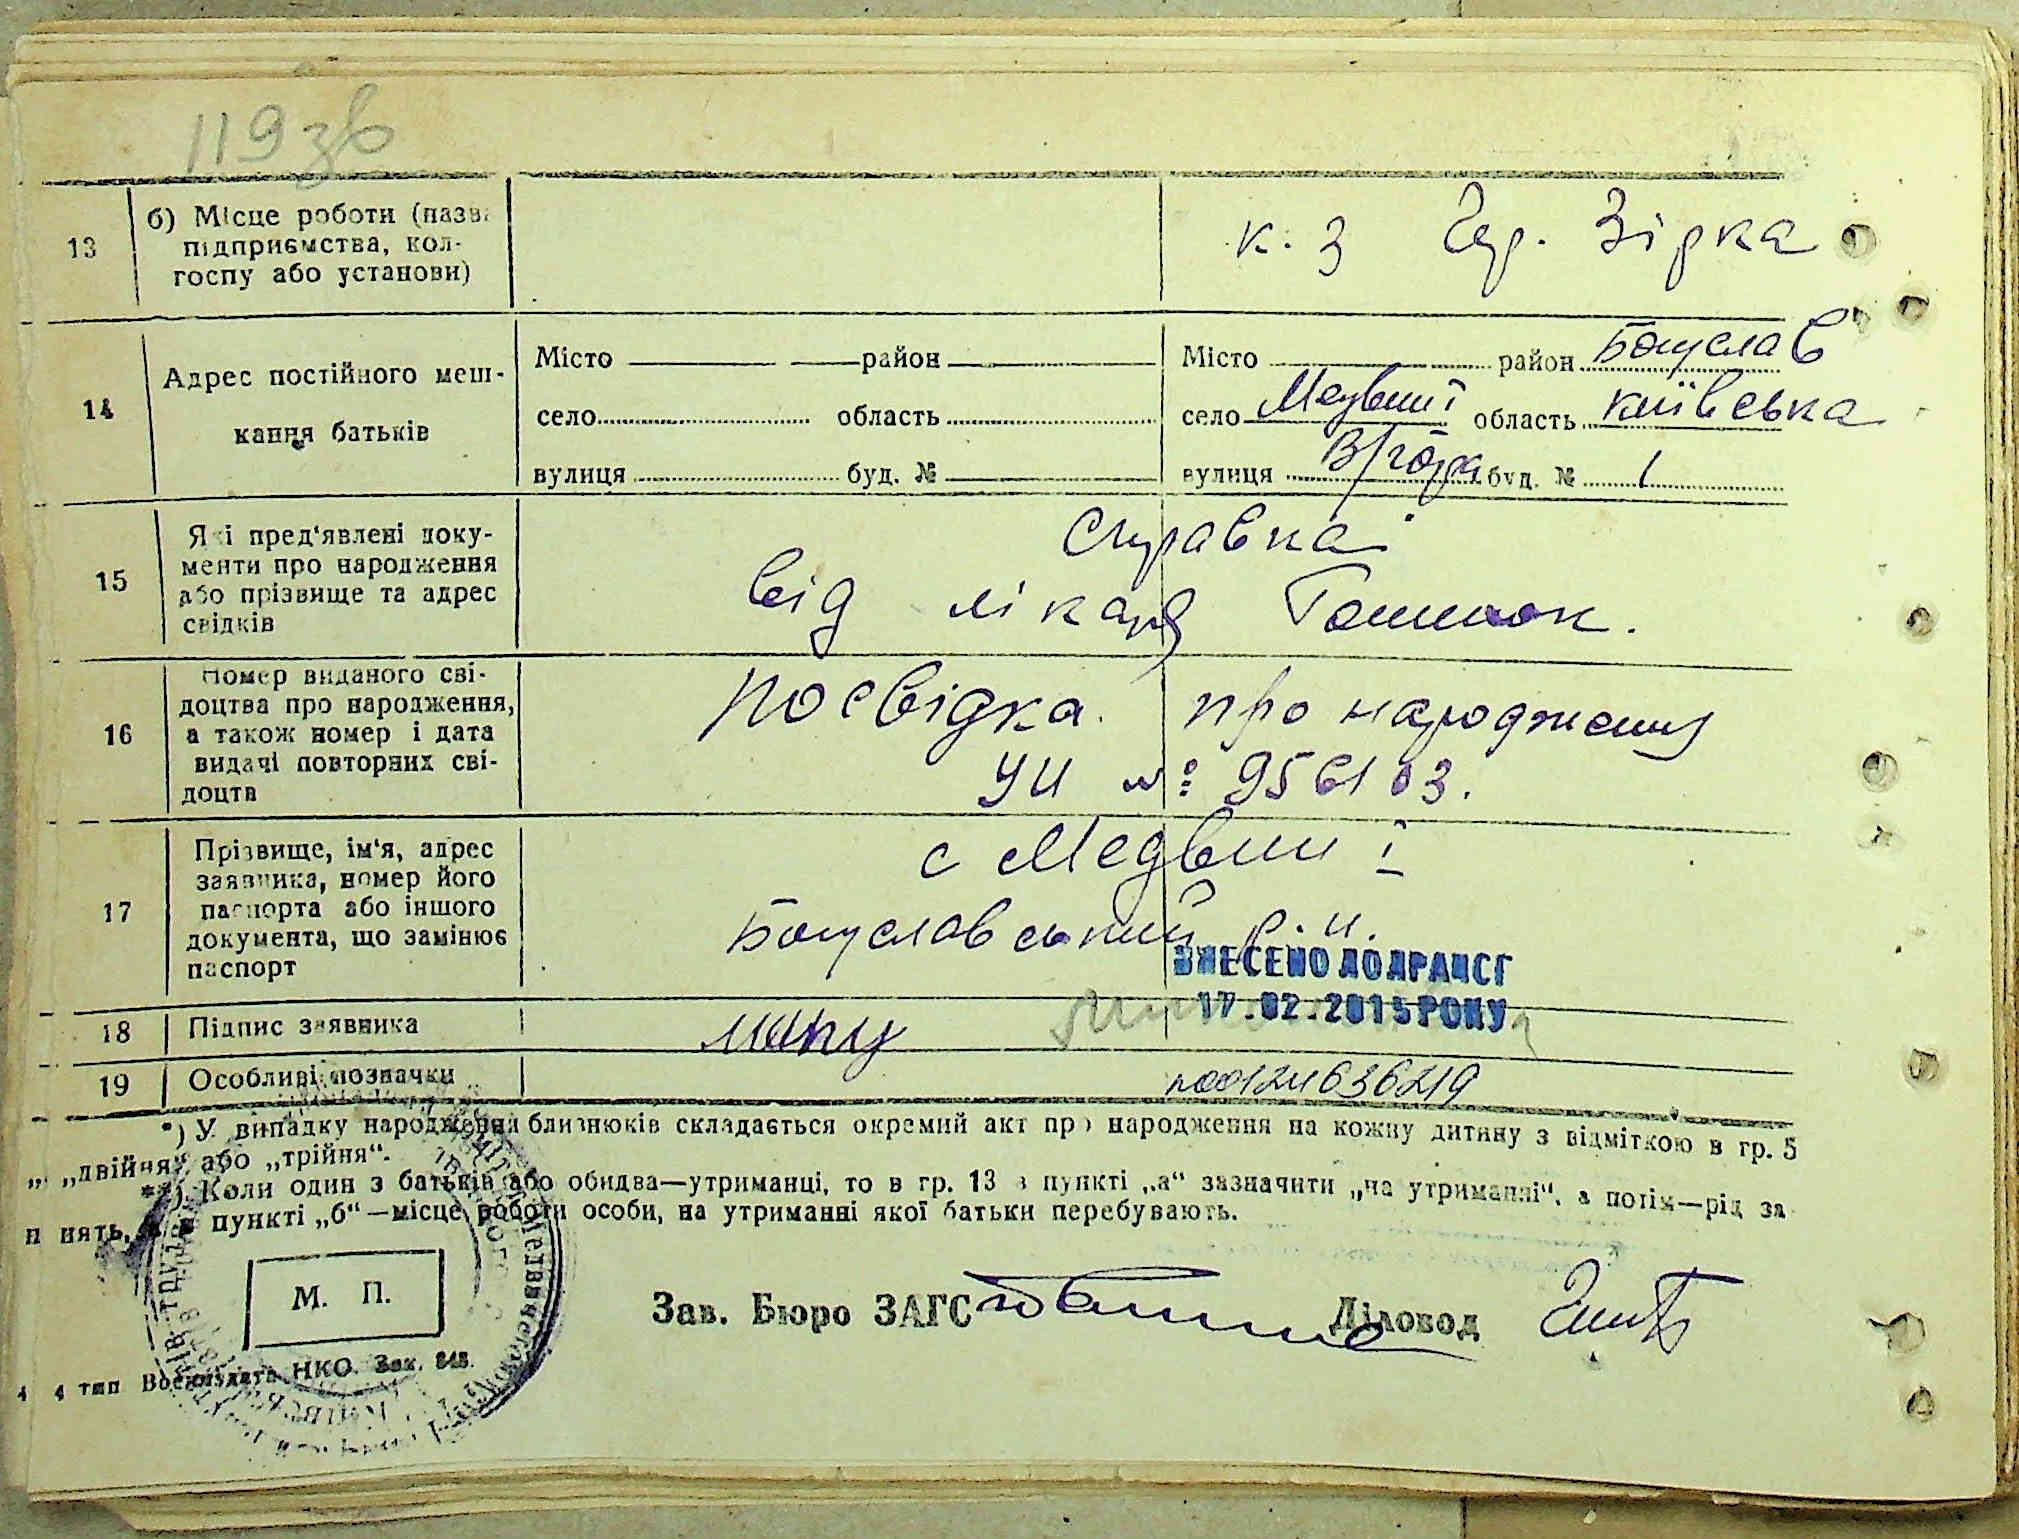 119 зв
13
б) Місце роботи (назва
підприємства, кол-
госпу або установи)
к. з Чер. Зірка
14
Адрес постійного меш-
кання батьків
Місто район
село область
вулиця буд. №
Місто район Богуслав
село Медвин ї область київська
вулиця буд. № 1
15
Які пред'явлені доку-
менти про народження
або прізвище та адрес
свідків
Справка
від лікаря
16
Номер виданого сві-
доцтва про народження,
а також номер і дата
видачі повторних сві-
доцтв
посвідка про народження
УИ №: 956103.
17
Прізвище, ім'я, адрес
заявника, номер його
паспорта або іншого
документа, що замінює
паспорт
с Медвин ї
Богуславський р. н.
ВНЕСЕНО ДО ДРАЦСГ
17.02.2015 РОКУ
18
Підпис заявника
19
Особливі позначки
*) У випадку народження близнюків складається окремий акт про народження на кожну дитину з відміткою в гр. 5
„двійня“ або „трійня“.
**) Коли один з батьків або обидва—утриманці, то в гр. 13 в пункті „а“ зазначити „на утриманні“, а потім—рід за
нять, в пункті „б“—місце роботи особи, на утриманні якої батьки перебувають.
М. П.
Зав. Бюро ЗАГС
Діловод
4 4 тип Воениздата НКО. Зак. 848.